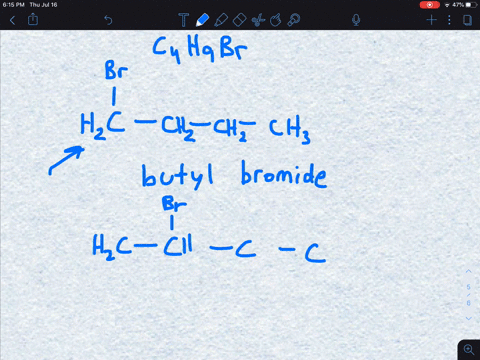 6:15 PM Thu Jul 16
47%
C4H9Br
Br
H2C — CH2 — CH2 — CH3
butyl bromide
Br
H2C — CH — C — C
5
6